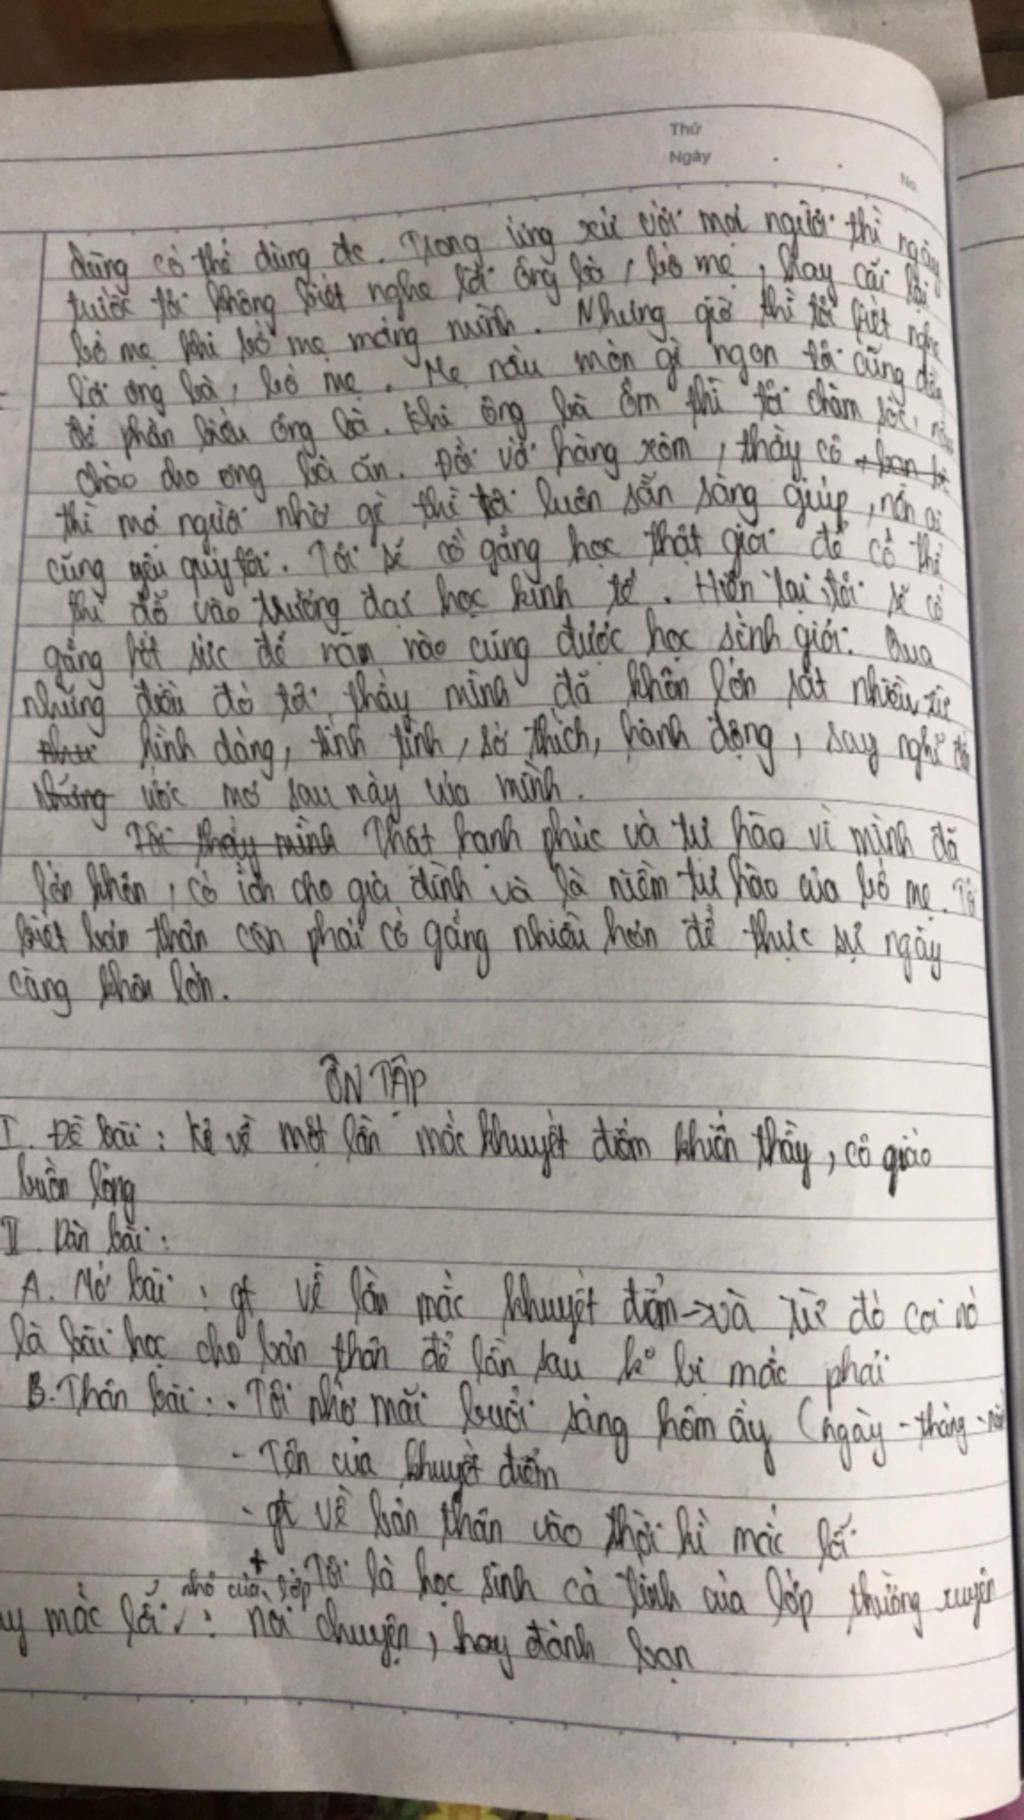 Thứ
Ngày
No.
dùng có thể dùng đc. Trong ứng xử với mọi người thì ngày
trước tôi không biết nghe lời ông bà, bố mẹ, hay cãi lại
bố mẹ khi bố mẹ mắng mình. Nhưng giờ thì tôi biết nghe
lời ông bà, bố mẹ. Mẹ nấu món gì ngon tôi cũng
để phần biếu ông bà. Khi ông bà ốm thì tôi chăm sóc,
cháo cho ong bà ăn. Đối với hàng xóm, thầy cô bạn bè
thì mọi người nhờ gì thì tôi luôn sẵn sàng giúp, nên ai
cũng yêu quý tôi. Tôi sẽ cố gắng học thật giỏi để có thể
thi đỗ vào trường đại học kinh tế. Hiện tại, tôi sẽ cố
gắng hết sức để năm nào cũng được học sinh giỏi. Qua
những điều đó tôi thấy mình đã khôn lớn rất nhiều từ
hình dáng, tính tình, sở thích, hành động, suy nghĩ đến
những ước mơ sau này của mình.
Tôi thấy mình Thật hạnh phúc và tự hào vì mình đã
lớn khôn, có ích cho gia đình và là niềm tự hào của bố mẹ. Tôi
biết bản thân còn phải cố gắng nhiều hơn để thực sự ngày
càng khôn lớn.
ÔN TẬP
I. Đề bài: Kể về một lần mắc khuyết điểm khiến thầy, cô giáo
buồn lòng
II. Dàn bài:
A. Mở bài: gt về lần mắc khuyết điểm → và từ đó coi nó
là bài học cho bản thân để lần sau k° bị mắc phải
B. Thân bài: - Tôi nhớ mãi buổi sáng hôm ấy (ngày - tháng - năm
- Tên của khuyết điểm
- gt về bản thân vào thời kì mắc lỗi
+ Tôi là học sinh cá tính của lớp thường xuyên
nhỏ của lớp
mắc lỗi: nói chuyện, hay đánh bạn